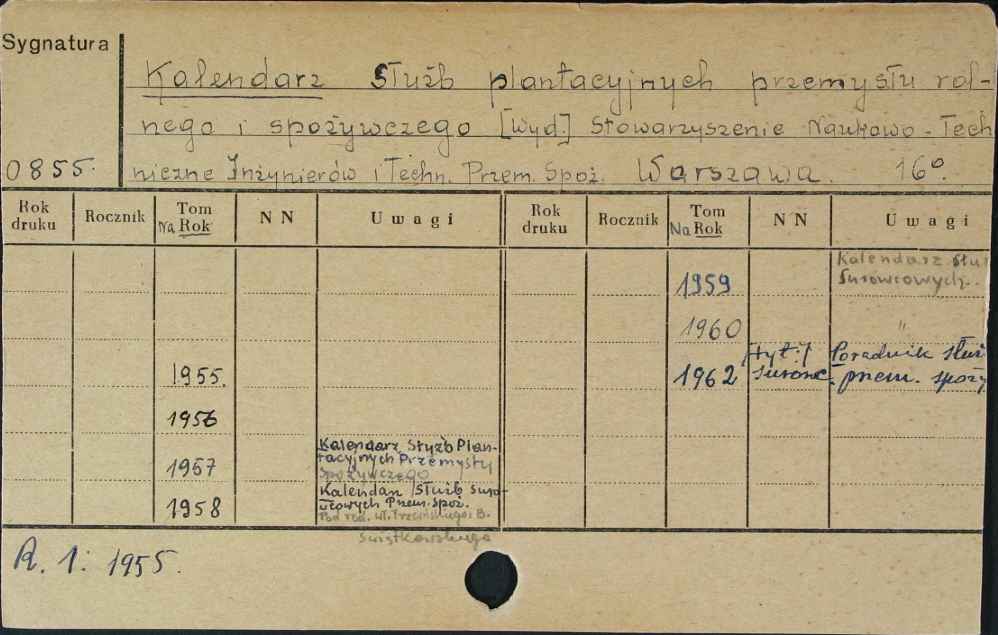 Sygnatura
Kalendarz służb plantacyjnych przemysłu rol-
nego i spożywczego [wyd.] Stowarzyszenie Naukowo-Tech
0855. niczne Inżynierów i Techn. Przem. Spoż. Warszawa. 16°.
Rok druku Rocznik Tom Na Rok NN Uwagi Rok druku Rocznik Tom Na Rok NN Uwagi
Kalendarz słu
1959 Surowcowych.
1960 "
[tyt:] Poradnik służ
1955. 1962 surowc. przem. spoży
1956
Kalendarz Służb Plan-
tacyjnych Przemysłu
1957 Spożywczego
Kalendarz Służb Suro-
1958 wcowych Przem. Spoż.
Pod red. Wł. Trzcińskiego i B.
Świątkowskiego
R. 1: 1955.